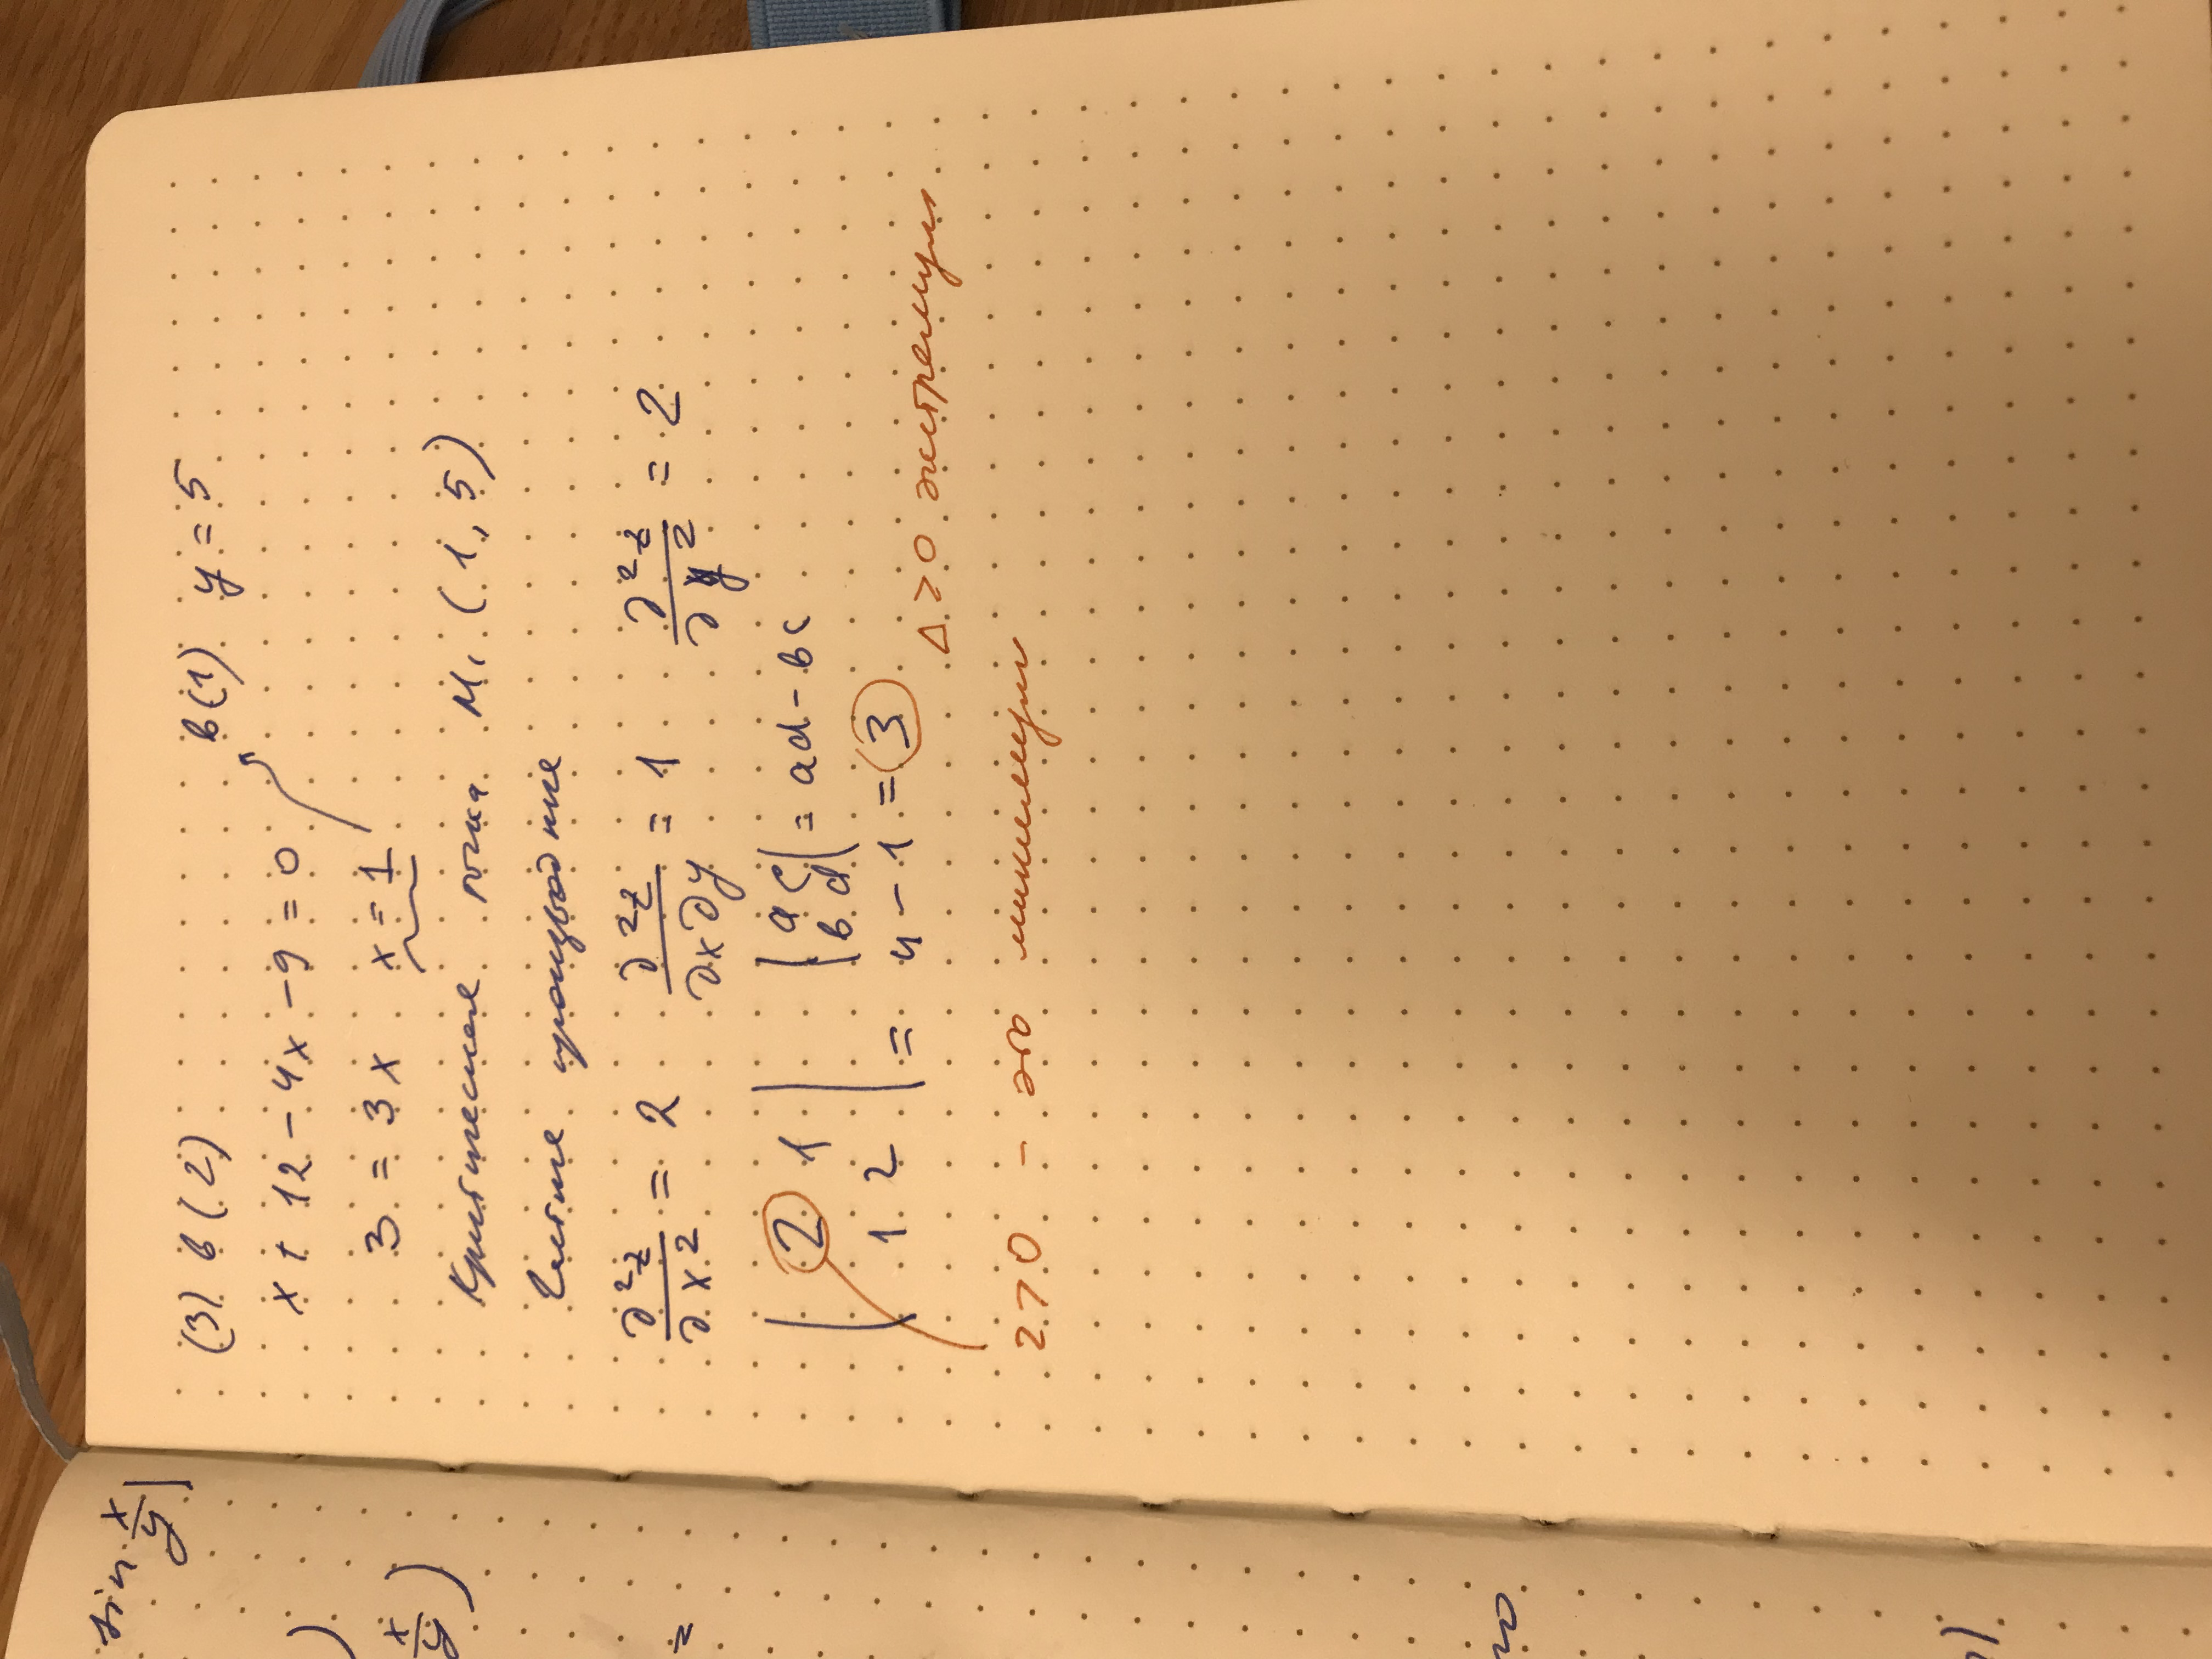 sin x/y]
)
x/y)
=
(3) в (2)
в (1) y = 5
x + 12 - 4x - 9 = 0
3 = 3x x = 1
Критическая точка M₁ (1, 5)
Частные производные
∂²z/∂x² = 2 ∂²z/∂x∂y = 1 ∂²z/∂y² = 2
| 2 1 | | a c | = ad - bc
| b d |
| 1 2 | = 4 - 1 = 3
Δ > 0 экстремум
2 > 0 - это минимум